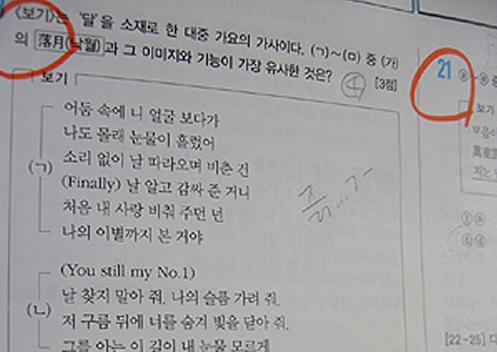 <보기>는 '달'을 소재로 한 대중 가요의 가사이다. (ㄱ)~(ㅁ) 중 (가)
의 落月(낙월)과 그 이미지와 기능이 가장 유사한 것은? [3점]
보기
(ㄱ)
어둠 속에 니 얼굴 보다가
나도 몰래 눈물이 흘렀어
소리 없이 날 따라오며 비춘 건
(Finally) 날 알고 감싸 준 거니
처음 내 사랑 비춰 주던 넌
나의 이별까지 본 거야
(ㄴ)
(You still my No.1)
날 찾지 말아 줘. 나의 슬픔 가려 줘.
저 구름 뒤에 너를 숨겨 빛을 닫아 줘.
그를 아는 이 길이 내 눈물 모르게
21
보기
[22-25] 다